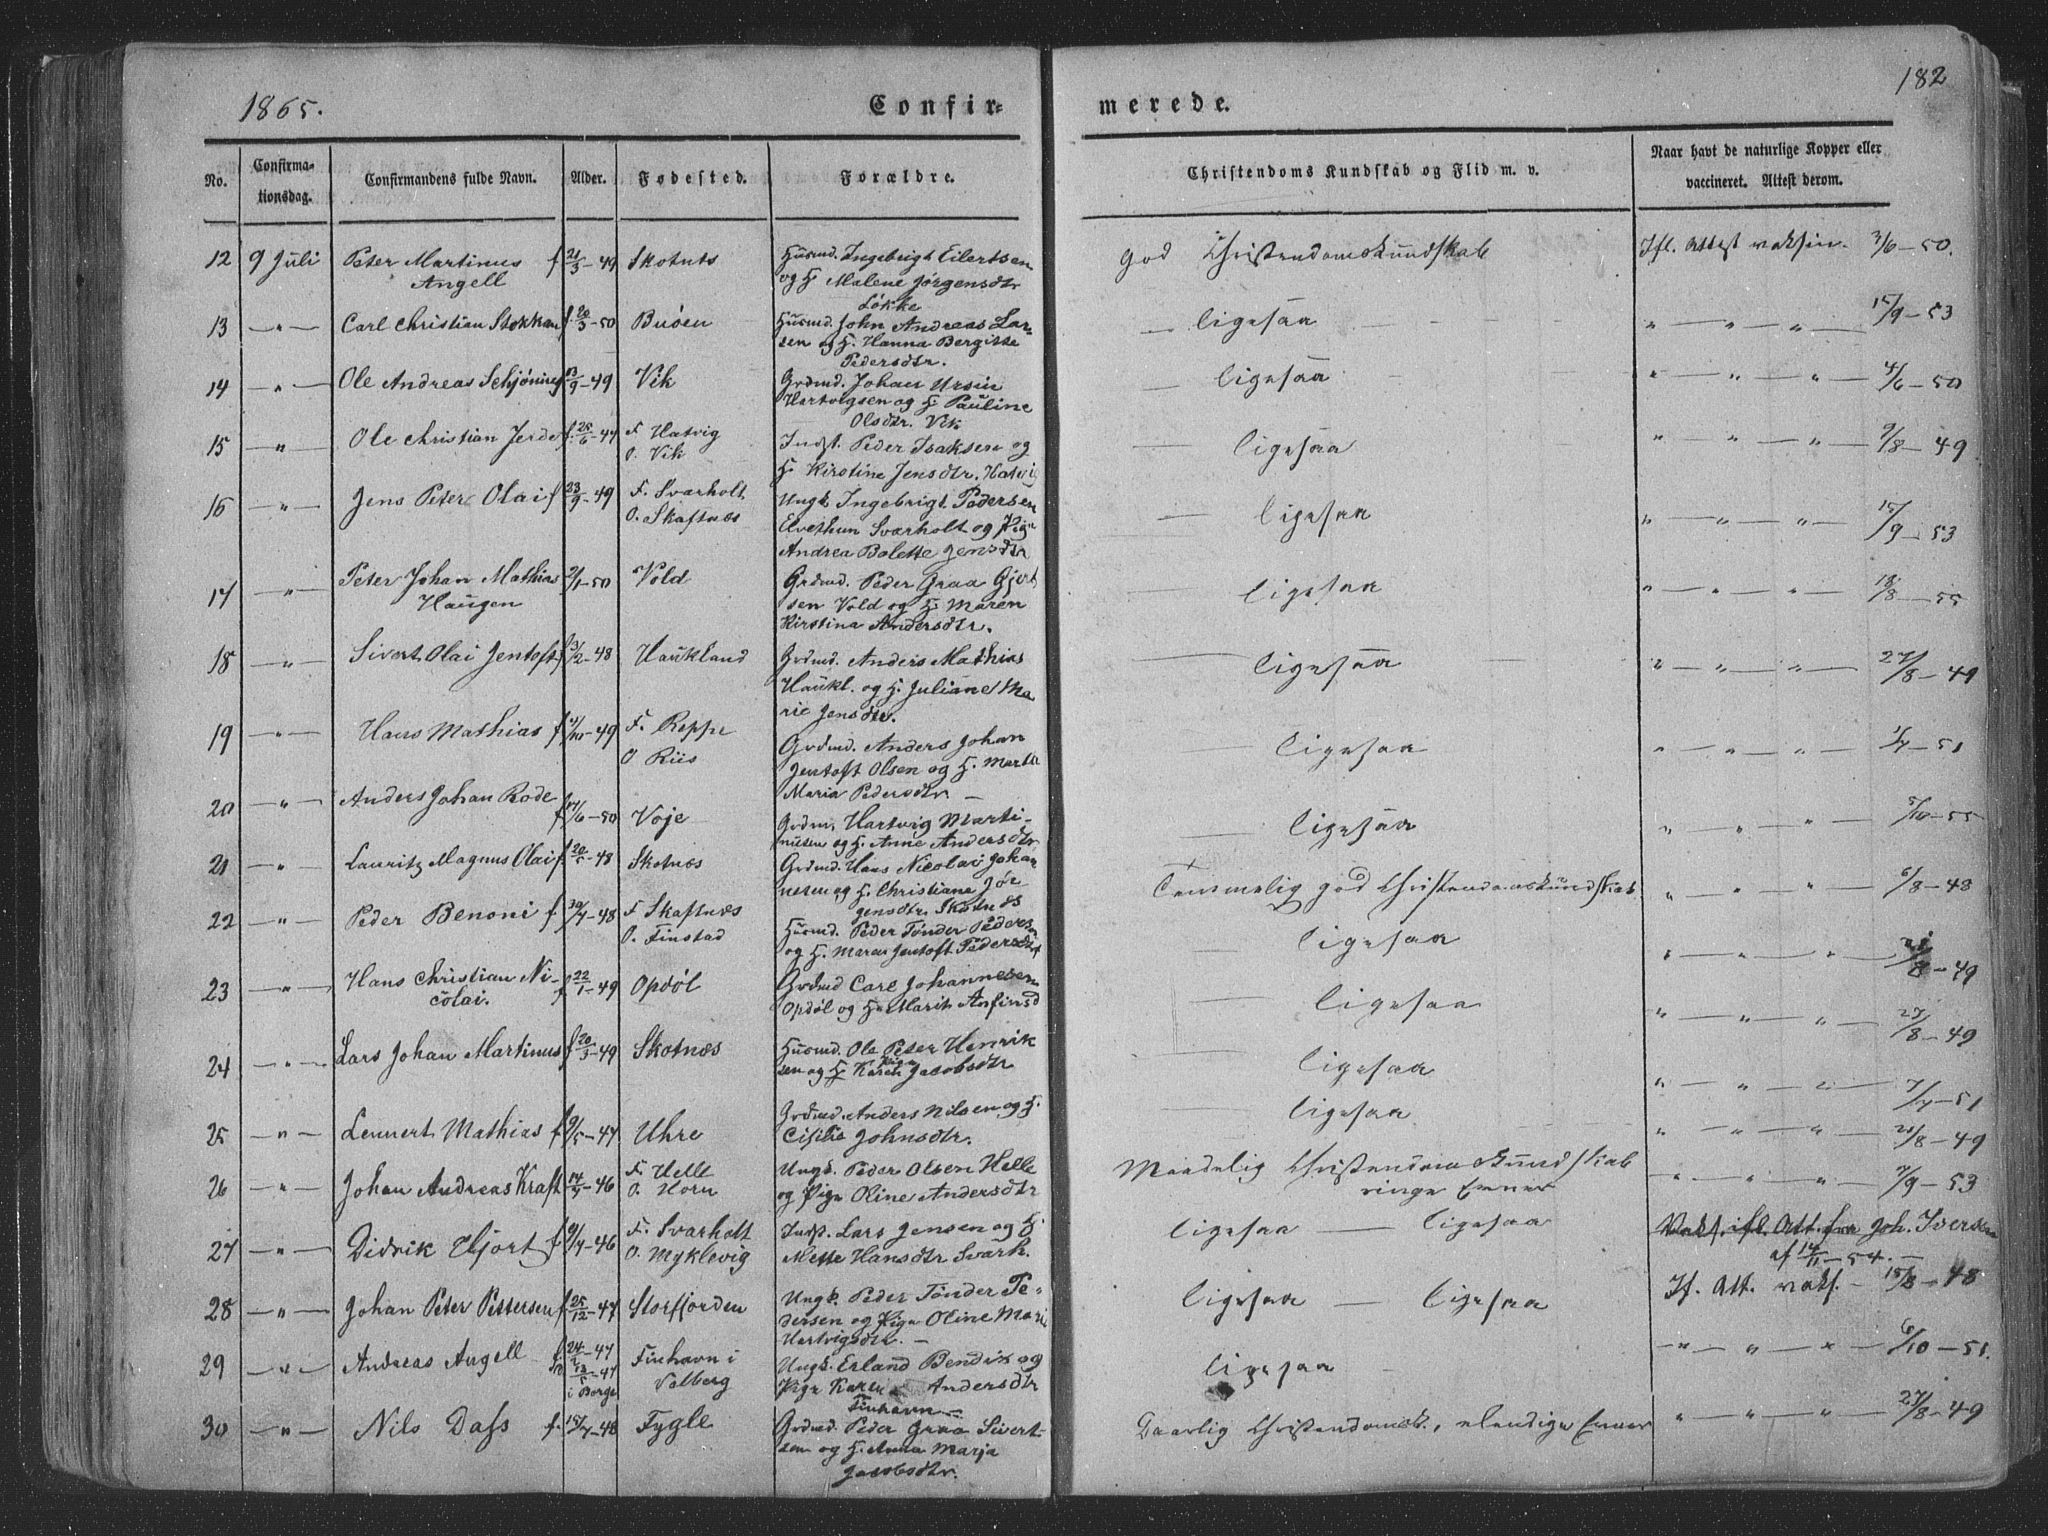 1865.
Confir-
merede.
182
No.
Confirma-
tionsdag.
Confirmandens fulde Navn.
Alder.
Fødested.
Forældre.
Christendoms Kundskab og Flid m. v.
Naar havt de naturlige Kopper eller
vaccineret. Attest derom.
12 9 Juli Peter Martinus f 21/3-49 Skotnts Husmd. Ingebrigt Eilertsen God Christendomskundskab Ifl. Attest vaksin. 3/6-50.
Angell og H Malene Jørgensdtr
Løkke
13 — " — Carl Christian Stokkan f. 20/3-50 Buøen Husmd. John Andreas Lar- — ligesaa " — " — " — 15/9-53
sen og H. Hanna Bergitte
Pedersdtr.
14 — " — Ole Andreas Schjøning 13/9-49 Vik Grdmd. Johan Ursin — ligesaa " — " — " — 4/6-50
Hartvigsen og H. Pauline
Olsdtr. Vik
15 — " — Ole Christian Jerde f. 25/6-47 F. Hatvig Indst. Peder Isaksen og — ligesaa " — " — " — 9/8-49
O. Vik H. Kirstine Jensdtr. Hatvig
16 — " — Jens Peter Olai f 23/9-49 F. Svarholt Ungk. Ingebrigt Pedersen — ligesaa " — " — " — 15/9-53
O. Skaftnæs Elvethun Svarholt og Pige
Andrea Bolette Jensdtr
17 — " — Peter Johan Mathias 2/1-50 Vold Grdmd. Peder Graa Gjert — ligesaa " — " — " — 18/8-55
Haugen sen Vold og H. Maren
Kirstina Andersdtr.
18 — " — Sivert Olai Jentoft f 3/2-48 Haukland Grdmd. Anders Mathias — ligesaa " — " — " — 27/8-49
Haukl. og H. Juliane Ma
rie Jensdtr.
19 — " — Hans Mathias f /10-49 F. Reppe Grdmd. Anders Johan — ligesaa " — " — " — 1/7-51
O Riis Jentoft Olsen og H. Martha
Maria Pedersdtr. —
20 — " — Anders Johan Rode f 17/6-50 Voje Grdm. Hartvig Marti- — ligesaa " — " — " — 5/10-55
nusen og H. Anne Andersdtr
21 — " — Lauritz Magnus Olai f 20/5-48 Skotnæs Grdmd. Hans Nicolai Johan Temmelig god Christendomskundskab " — " — " — 6/8-48
nesen og H. Christiane Jør-
gensdtr. Skotnæs
22 — " — Peder Benoni f 30/4-48 F Skaftnæs Husmd. Peder Tønder Pedersen — ligesaa " — " — " — /8-49
O. Finstad og H. Maren Jentoft Pedersdtr
23 — " — Hans Christian Ni- f 22/1-49 Opdøl Grdmd Carl Johannesen — ligesaa " — " — " — 27/8-49
colai. Opdøl og H. Marit Anfinsd
24 — " — Lars Johan Martinus f 20/3-49 Skotnæs Husmd. Ole Peter Henrik ligesaa " — " — " — 7/7-51
sen og H Pige Karen Jacobsdtr
25 — " — Lennert Mathias f 9/5-47 Uhre Grdmd. Anders Nilsen og H. — ligesaa " — " — " — 21/8-49
Cisilie Johnsdtr.
26 — " — Johan Andreas Kraft 14/4-46 F. Helle Ungk. Peder Olsen Helle Maadelig Christendomskundskab " — " — " — 7/9-53
O. Horn og Pige Oline Andersdtr ringe Evner
27 — " — Didrik Hjort f 9/4-46 F. Svarholt Indst. Lars Jensen og H. ligesaa — ligesaa Vaks. ifl. Att. fra Joh. Iversen
O. Myklevig Mette Hansdtr Svarh. af 14/11-54. —
28 — " — Johan Peter Pettersen f 25/12-47 Storfjorden Ungk. Peder Tønder Pe- ligesaa — ligesaa If. Att. vaks. - 15/8-48
dersen og Pige Oline Mari
Hartvigsdtr. —
29 — " — Andreas Angell f 24/2-47 Finhavn i Ungk. Erland Bendix og ligesaa " — " — " — 6/10-51.
13/5-47 Valberg Pige Karen Andersdtr
i Borge Finhavn —
30 — " — Nils Dass f. 15/4-48 Fygle Grdmd. Peder Graa Sivert- Daarlig Christendomsk., elendige Evner " — " — " — 27/8-49
sen og H. Anna Marja
Jacobsdtr.